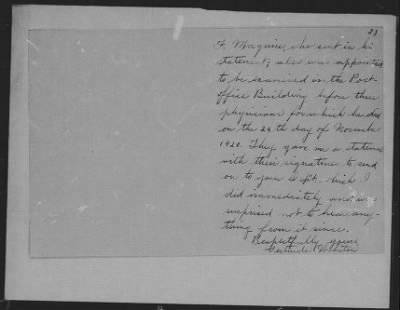 21
F. Maguire, who sent in his
statement; also was appointed
to be examined in the Post-
office Building before three
physicians for which he did
on the 29th day of November
1920. They gave me a statement
with their signatures to send
on to your Dept. which I
did immediately and was
surprised not to hear any-
thing from it since.
Respectfully yours,
Gertrude